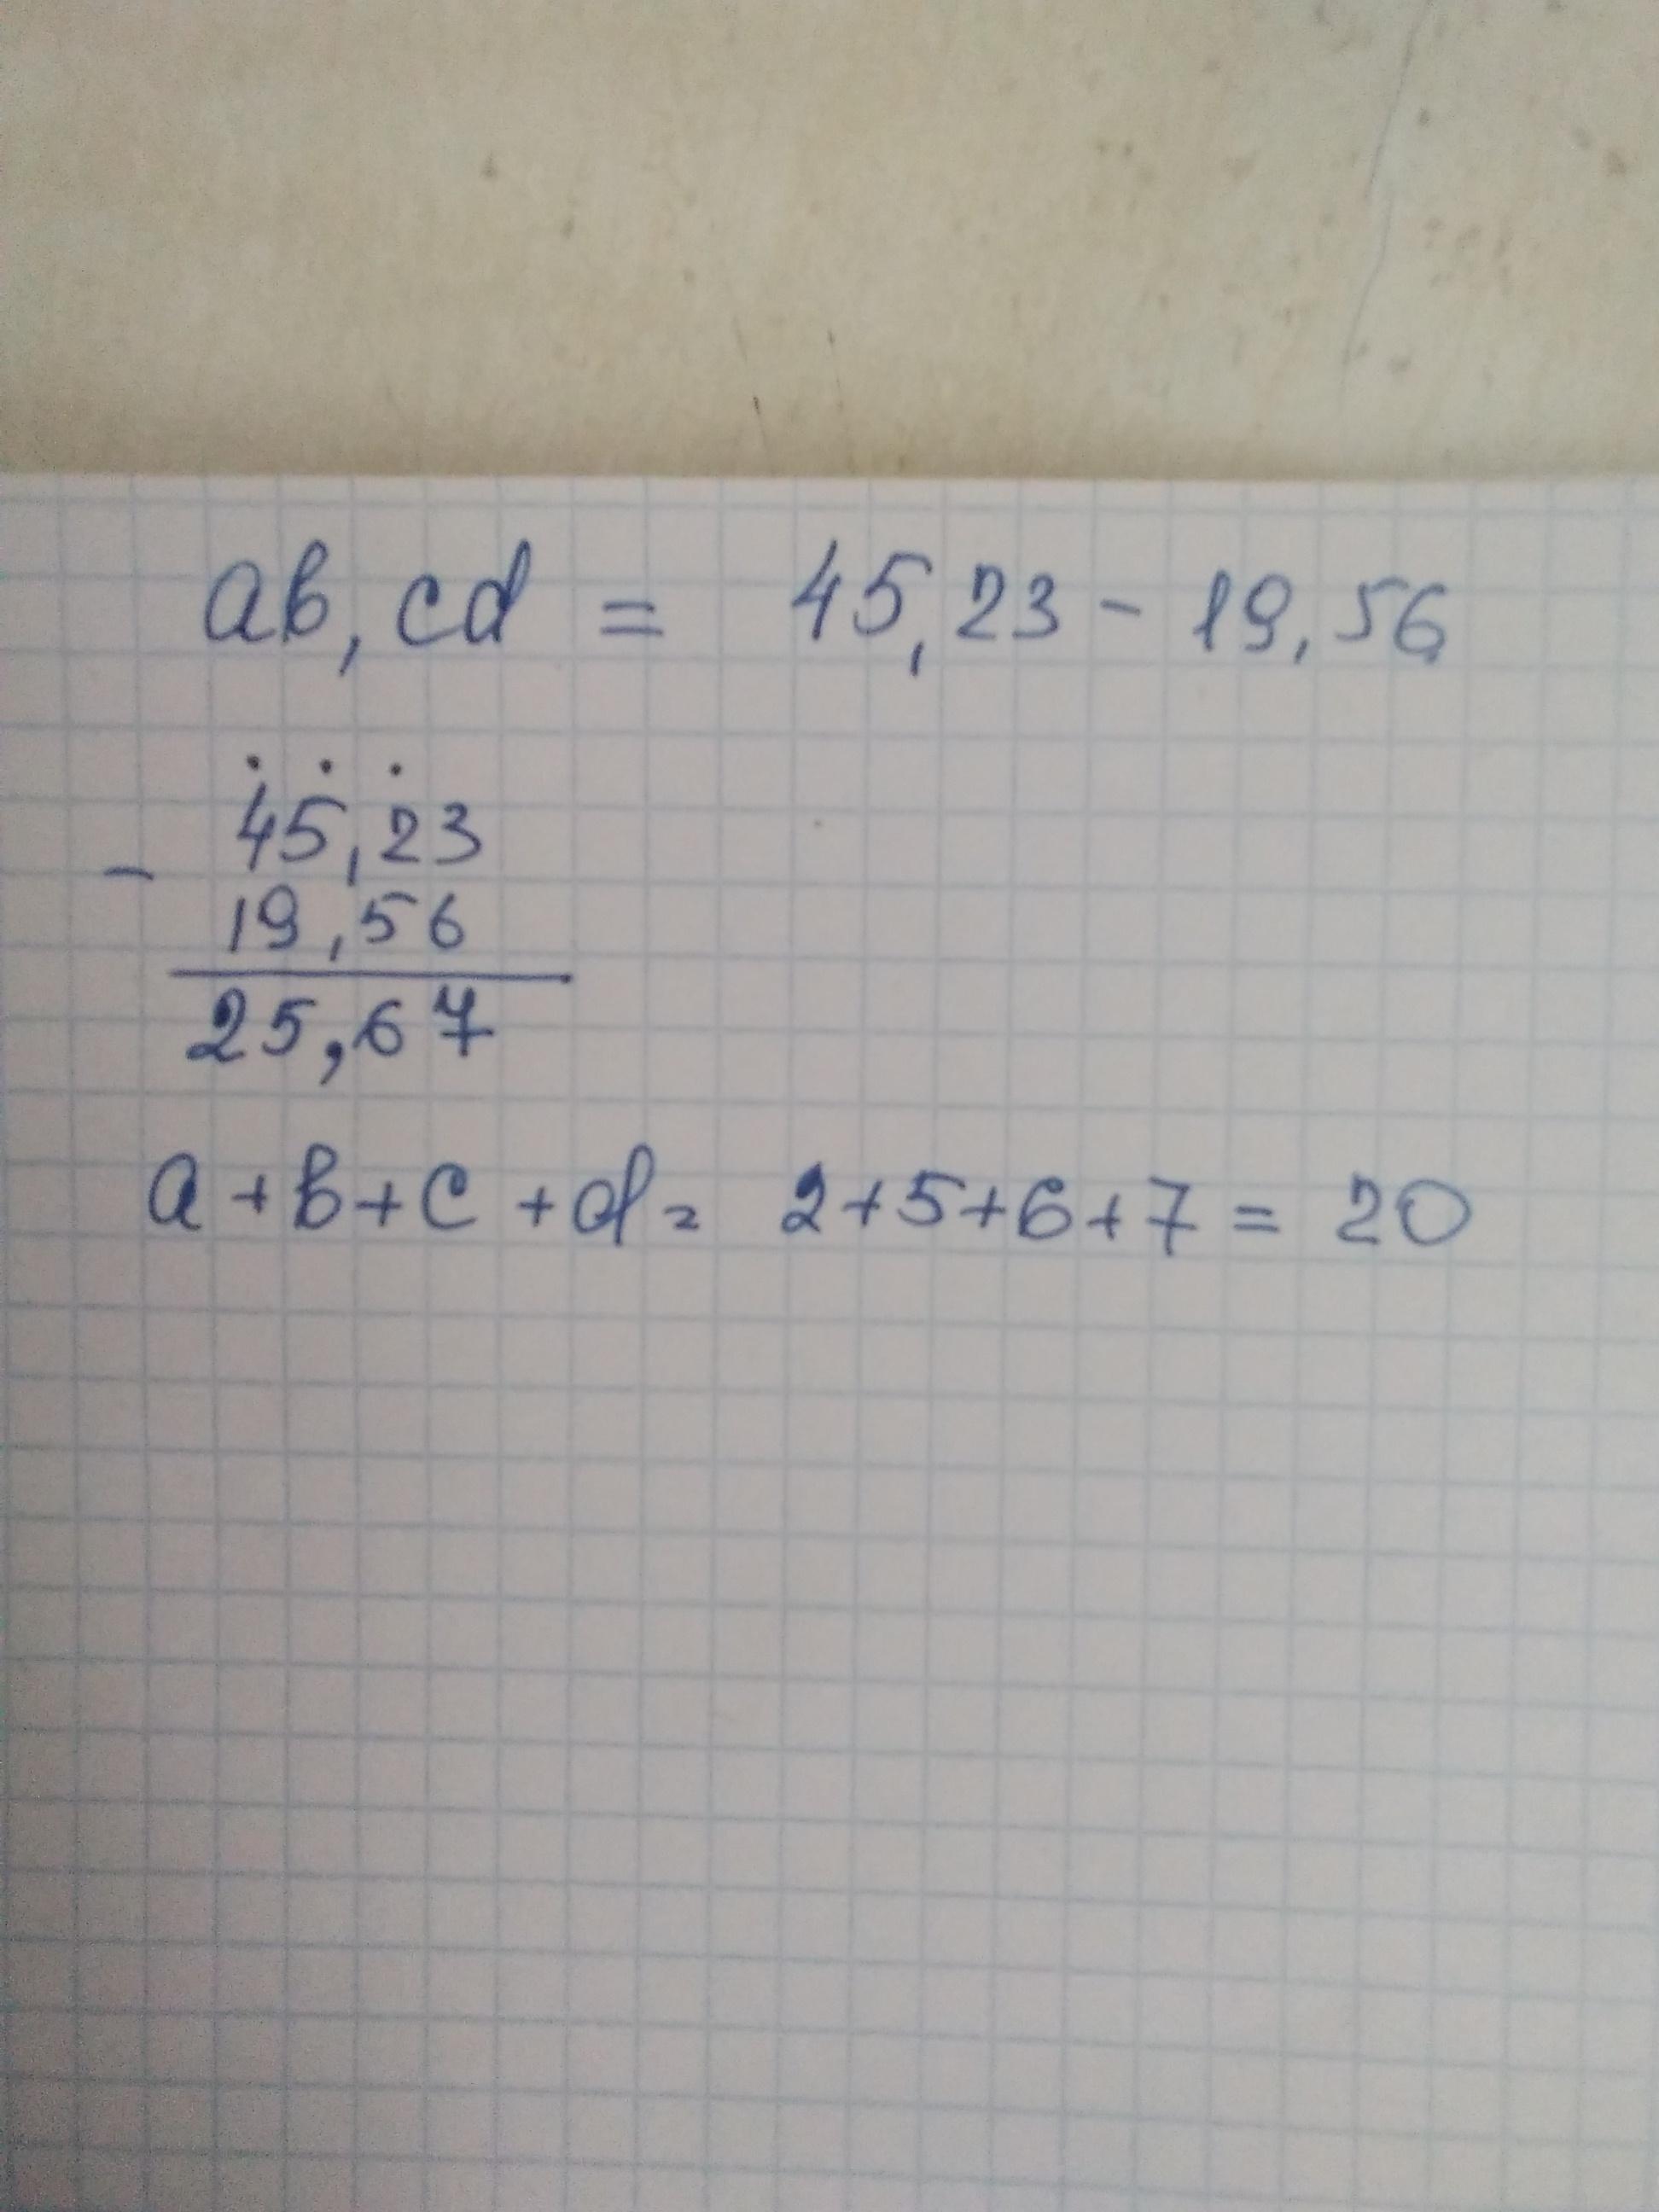 ab, cd = 45,23 - 19,56
. . .
45,23
-
19,56
25,67
a+b+c+d= 2+5+6+7=20